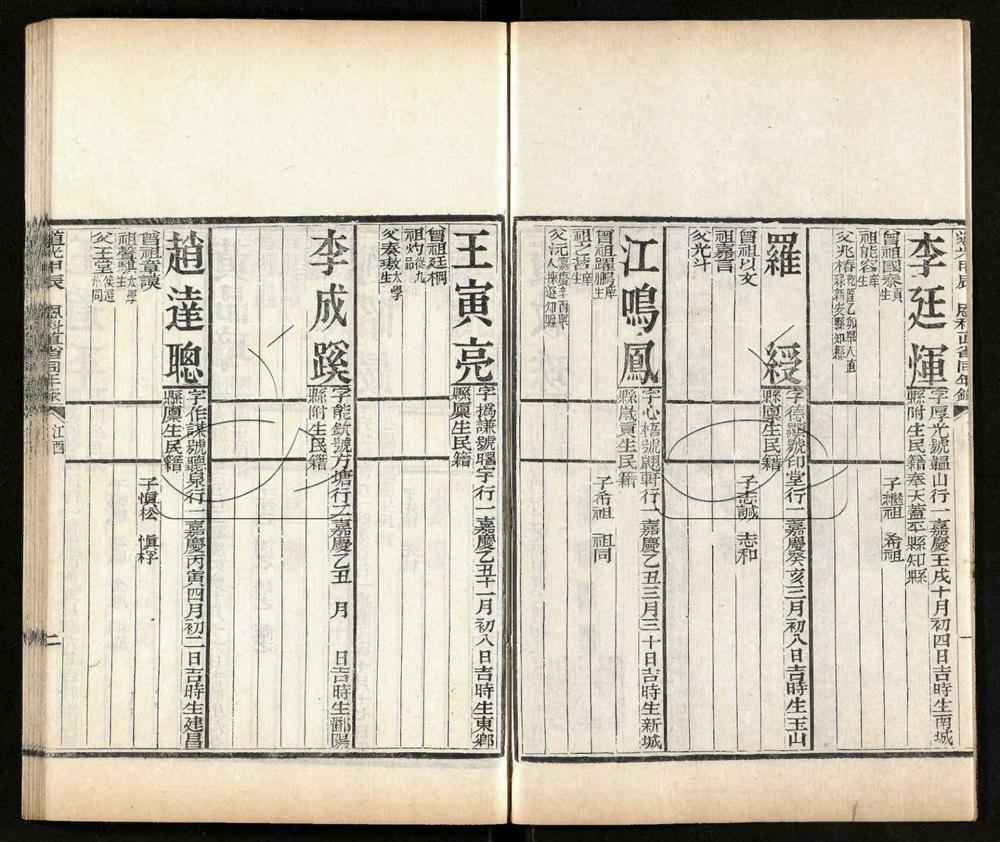 道光甲辰 恩科直省同年錄
一
李廷煇
字厚光號韞山行一嘉慶壬戌十月初四日吉時生南城
縣附生民籍奉天蓋平縣知縣
曾祖國泰
祖能容庠生
父兆椿乾隆乙卯舉人直隸新安縣知縣
子繼祖 希祖
羅綬
字德顯號印堂行一嘉慶癸亥三月初八日吉時生玉山
縣廩生民籍
曾祖以文
祖嘉言
父光斗
子志誠 志和
江鳴鳳
字心梧號軒行一嘉慶乙丑三月三十日吉時生新城
縣歲貢生民籍
曾祖躍鵬庠生
祖之皆庠生
父沅嘉慶辛酉舉人東知縣
子希祖 祖同
王寅亮
字撝謙號曙宇行一嘉慶乙丑十二月初八日吉時生東鄉
縣廩生民籍
曾祖廷棡
祖灼從九品
父奏璈太學生
李成蹊
字能欽號方塘行二嘉慶乙丑 月 日吉時生鄱陽
縣附生民籍
趙達聰
字作謀號聽泉行一嘉慶丙寅四月初二日吉時生建昌
縣廩生民籍
曾祖章謨
祖馨騏太學生
父玉堂候選州同
子愼松 愼桴
道光甲辰 恩科直省同年錄
江西
二